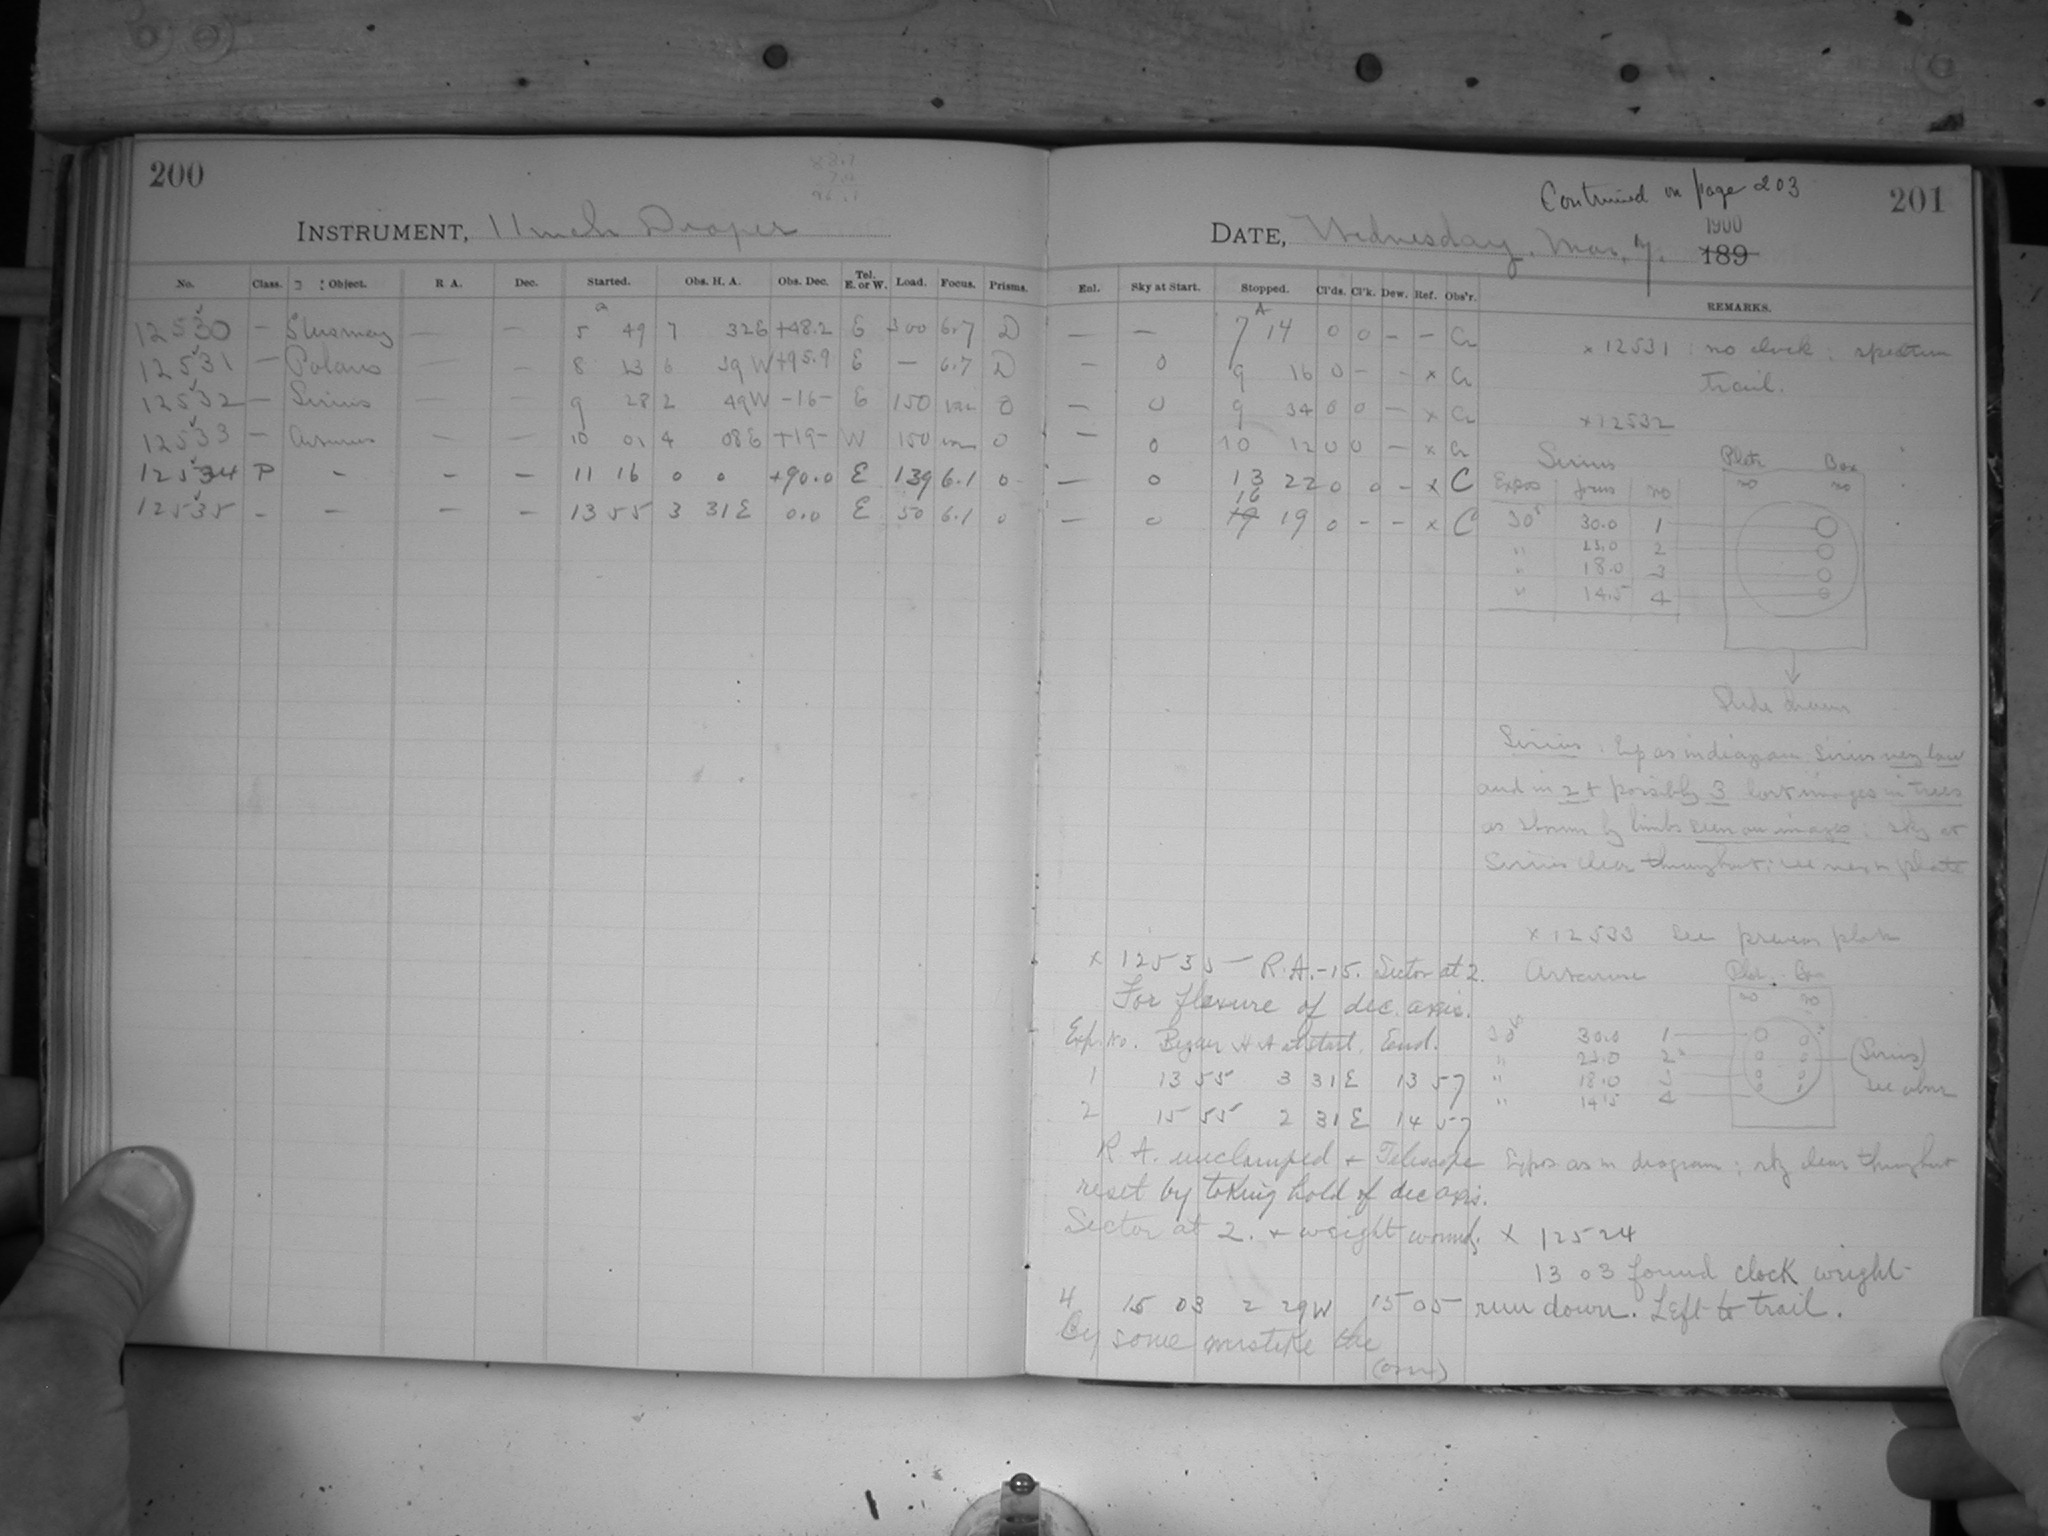 200
INSTRUMENT, 11 inch Draper
No. Class. Object. R A. Dec. Started. Obs. H. A. Obs. Dec. Tel. E. or W. Load. Focus. Prisms.
12530 — — — 5 49 7 32 E +48.2 E 300 6.7 D
12531 — Polaris — — 8 6 39 W +95.9 E — 6.7 D
12532 — Sirius — — 9 28 2 49 W -16- E 150 var 0
12533 — Arcturus — — 10 01 4 08 E +19- W 150 var 0
12534 P — — — 11 16 0 0 +90.0 E 139 6.1 0
12535 - — — — 13 55 3 31 E 0.0 E 50 6.1 0
Continued on page 203
201
DATE, Wednesday, Mar. 7. 1900 189
Enl. Sky at Start. Stopped. Cl'ds. Cl'k. Dew. Ref. Obs'r. REMARKS.
— — 7 14 0 0 - - Cr
— 0 9 16 0 - - x Cr
— 0 9 34 0 0 — x Cr
— 0 10 12 0 0 — x Cr
— 0 13 22 0 0 - x C
— 0 16 19 19 0 - - x C
x 12531 : no clock : spectrum
trail.
x 12532
Sirius
Plate no Box no
Expos focus no
30s 30.0 1
" 23.0 2
" 18.0 3
" 14.5 4
Slide drawn
Sirius : Exp as in diagram Sirius very low
and in 2 + possibly 3 lost images in trees
as shown by limbs seen on images : sky at
Sirius clear throughout ; see next plate
x 12533 See previous plate
Arcturus
Plate no Box no
30s 30.0 1
" 23.0 2
" 18.0 3
" 14.5 4
(Sirius)
see above
Expos as in diagram ; sky clear throughout
x 12524
13 03 found clock weight
run down. Left to trail.
x 12535 — R.A.-15. Sector at 2.
For flexure of dec. axis.
Exp. No. Began H A at start. End.
1 13 55 3 31 E 13 57
2 15 55 2 31 E 14 57
R A. unclamped + Telescope
reset by taking hold of dec axis.
Sector at 2. + weight wound.
4 15 03 2 29 W 15 05
By some mistake the
(over)